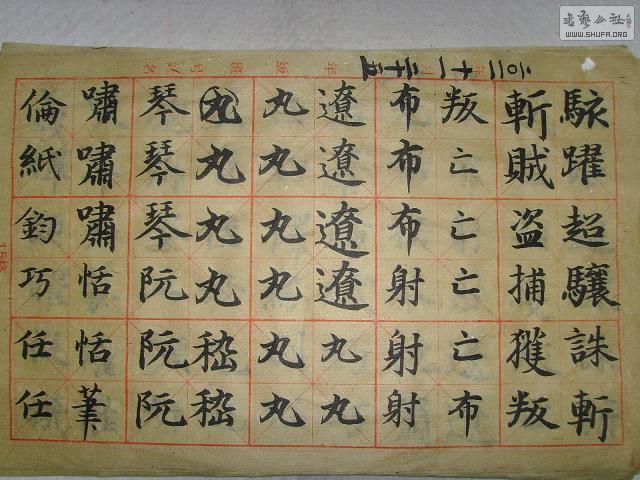 駭躍超驤誅斬
斬賊盗捕獲叛
叛亡亡亡亡布
布布布射射射
遼遼遼遼丸丸
丸丸丸丸丸丸
丸丸丸丸嵇嵇
琴琴琴阮阮阮
嘯嘯嘯恬恬筆
倫紙鈞巧任任
十一
二十五
书艺公社
WWW.SHUFA.ORG